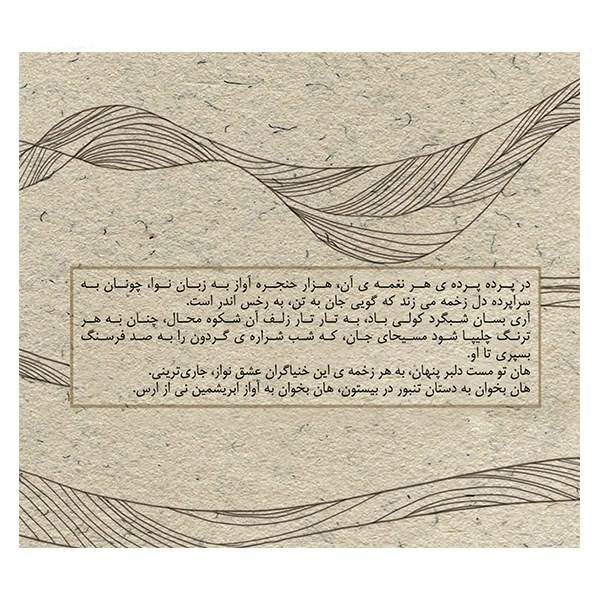 در پرده پرده ی هر نغمه ی آن، هزار حنجره آواز به زبان نوا، چونان به
سراپرده دل زخمه می زند که گویی جان به تن، به رخس اندر است.
آری بسان شبگرد کولی باد، به تار تار زلف آن شکوه محال، چنان به هر
ترنگ چلیپا شود مسیحای جان، که شب شراره ی گردون را به صد فرسنگ
بسپری تا او.
هان تو مست دلبر پنهان، به هر زخمه ی این خنیاگران عشق نواز، جاری‌ترینی.
هان بخوان به دستان تنبور در بیستون، هان بخوان به آواز ابریشمین نی از ارس.